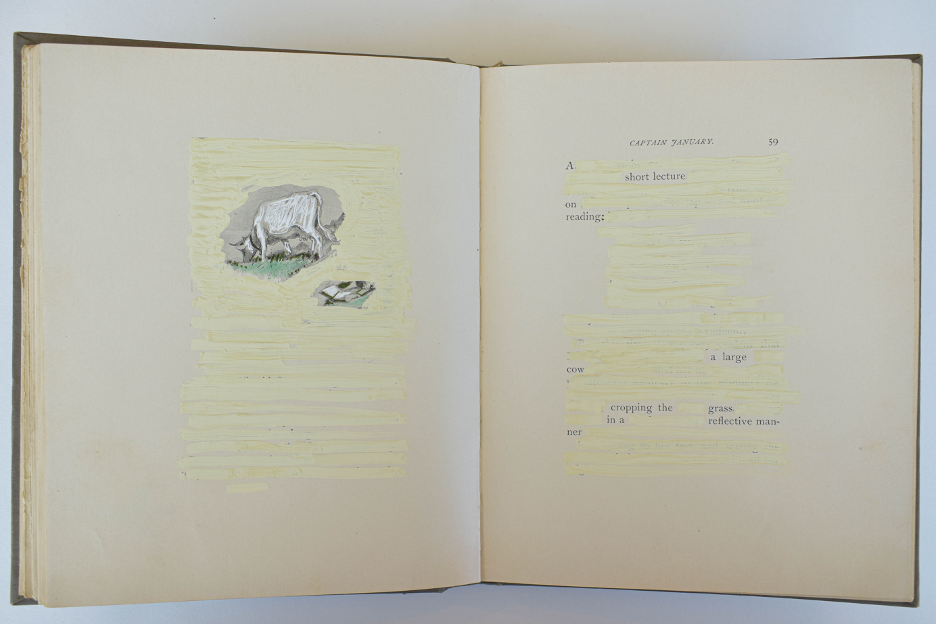 CAPTAIN JANUARY. 59
A
short lecture
on
reading:
a large
cow
cropping the grass.
in a reflective man-
ner